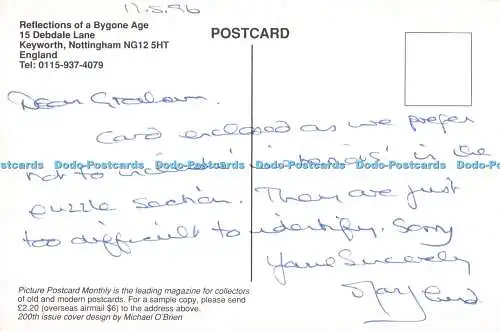 17.5.96
Reflections of a Bygone Age
15 Debdale Lane
Keyworth, Nottingham NG12 5HT
England
Tel: 0115-937-4079
POSTCARD
Dear Graham.
Card enclosed as we prefer
not to include in the
puzzle section. They are just
too difficult to identify. Sorry
Yours Sincerely
Mary
Dodo-Postcards Dodo-Postcards Dodo-Postcards Dodo-Postcards
Picture Postcard Monthly is the leading magazine for collectors
of old and modern postcards. For a sample copy, please send
£2.20 (overseas airmail $6) to the address above.
200th issue cover design by Michael O'Brien